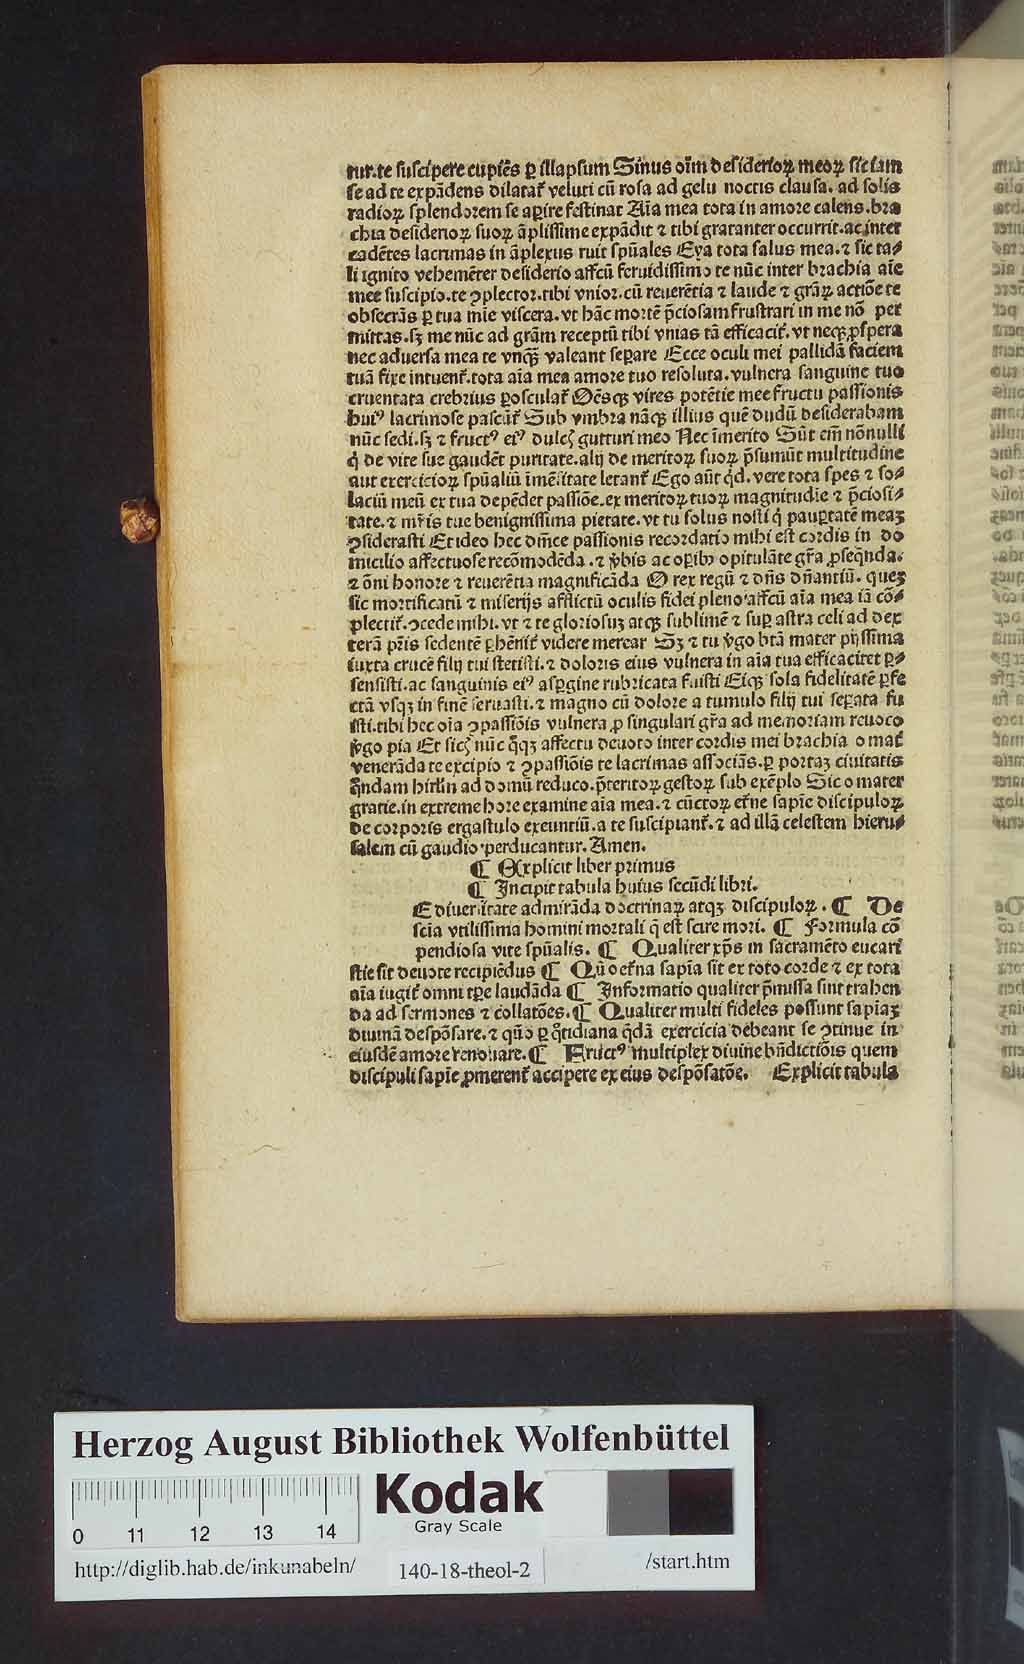 tur.te suscipere cupiēs ꝑ illapsum Sinus oīm desiderioꝝ meoꝝ sic iam
se ad te expādens dilatať veluti cū rosa ad gelu noctis clausa. ad solis
radioꝝ splendorem se aꝑire festinat Aīa mea tota in amore calens.bra
chia desiderioꝝ suoꝝ āplissime expādit ⁊ tibi gratanter occurrit.ac inter
cadētes lacrimas in āplexus ruit spūales Eya tota salus mea.⁊ sic ta⸗
li ignito vehemēter desiderio affcū feruidissimo te nūc inter brachia aīe
mee suscipio.te ꝯplector.tibi vnior.cū reuerētia ⁊ laude ⁊ grāꝝ actiōe te
obsecrās ꝑ tua mīe viscera.vt hāc mortē p̄ciosam frustrari in me nō per
mittas.sꝫ me nūc ad grām receptū tibi vnias tā efficaciť.vt neqꝫ ꝓspera
nec aduersa mea te vnqꝫ̄ valeant seꝑare Ecce oculi mei pallidā faciem
tuā fixe intuenť.tota aīa mea amore tuo resoluta.vulnera sanguine tuo
cruentata crebrius ꝑosculať Oēsqꝫ vires potētie mee fructu passionis
huiꝰ lacrimose pascūť Sub vmbra nāqꝫ illius quē dudū desiderabam
nūc sedi.sꝫ ⁊ fructꝰ eiꝰ dulcꝭ gutturi meo Nec īmerito Sūt em̄ nōnulli
q̇ de vite sue gaudēt puritate.alij de meritoꝝ suoꝝ p̄sumūt multitudine
aut exercicioꝝ spūaliū īmēsitate letanť Ego aūt q̇d. vere tota spes ⁊ so⸗
laciū meū ex tua depēdet passiōe.ex meritoꝝ tuoꝝ magnitudīe ⁊ p̄ciosi⸗
tate.⁊ mr̄is tue benignissima pietate.vt tu solus nosti q̇ pauꝑtatē meaꝫ
ꝯsiderasti Et ideo hec dn̄ice passionis recordatio mihi est cordis in do
micilio affectuose recōmodēda.⁊ v̓bis ac oꝑibꝫ opitulāte gr̄a ꝓseq̄nda.
⁊ ōni honore ⁊ reuerētia magnificāda O rex regū ⁊ dn̄s dn̄antiū. queꝫ
sic mortificatū ⁊ miserijs afflictū oculis fidei pleno affcū aīa mea iā cō⸗
plectiť.ꝯcede mihi.vt ⁊ te gloriosuꝫ atqꝫ sublimē ⁊ suꝑ astra celi ad dex
terā pr̄is sedentē ꝑhēniť videre merear Sꝫ ⁊ tu v̓go btā mater pijssima
iuxta crucē filij tui stetisti.⁊ doloris eius vulnera in aīa tua efficaciter ꝑ⸗
sensisti.ac sanguinis eiꝰ asꝑgine rubricata fuisti Eiqꝫ sola fidelitatē ꝑfe
ctā vsqꝫ in finē seruasti.⁊ magno cū dolore a tumulo filij tui seꝑata fu
isti.tibi hec oīa ꝯpassiōis vulnera ꝓ singulari gr̄a ad memoriam reuoco
v̓go pia Et sicꝭ nūc q̄qꝫ affectu deuoto inter cordis mei brachia o mať
venerāda te excipio ⁊ ꝯpassiōis te lacrimas associās.ꝑ portaꝫ ciuitatis
q̄ndam hirl̄m ad domū reduco.p̄teritoꝝ gestoꝝ sub exēplo Sic o mater
gratie.in extreme hore examine aīa mea.⁊ cūctoꝝ et̓ne sapīe discipuloꝝ
de corporis ergastulo exeuntiū.a te suscipianť.⁊ ad illā celestem hieru⸗
salem cū gaudio perducantur. Amen.
¶ Explicit liber primus
¶ Incipit tabula huius secūdi libri.
E diuersitate admirāda doctrinaꝝ atqꝫ discipuloꝝ. ¶ De
scīa vtilissima homini mortali q̄ est scire mori. ¶ Formula cō
pendiosa vite spūalis. ¶ Qualiter xp̄s in sacramēto eucari
stie sit deuote recipiēdus ¶ Qūo et̓na sapīa sit ex toto corde ⁊ ex tota
aīa iugiť omni tꝑe laudāda ¶ Informatio qualiter p̄missa sint trahen
da ad sermones ⁊ collatōes. ¶ Qualiter multi fideles possunt sapīaꝫ
diuinā despōsare.⁊ quō ꝑ q̊tidiana q̄dā exercicia debeant se ꝯtinue in
eiusdē amore renouare. ¶ Fructꝰ multiplex diuine bn̄dictiōis quem
discipuli sapīe ꝓmerenť accipere ex eius despōsatōe. Explicit tabula
Herzog August Bibliothek Wolfenbüttel
0 11 12 13 14
Kodak
Gray Scale
http://diglib.hab.de/inkunabeln/ 140-18-theol-2 /start.htm